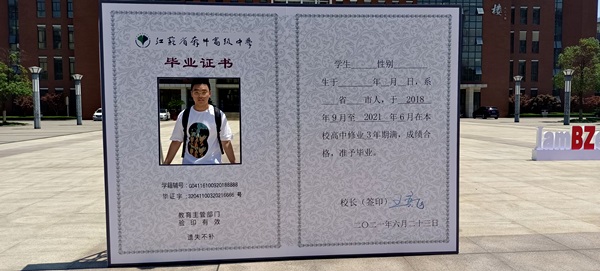 江苏省奔牛高级中学
毕业证书
学籍辅号：G04118100920188888
毕证字：32041100320216666 号
教育主管部门
验印有效
遗失不补
学生____性别____
生于____年__月__日，系
___省___市人，于 2018
年9月至 2021 年6月在本
校高中修业3年期满，成绩合
格，准予毕业。
校长（签印）
二〇二一年六月二十三日
楼
I am BZ